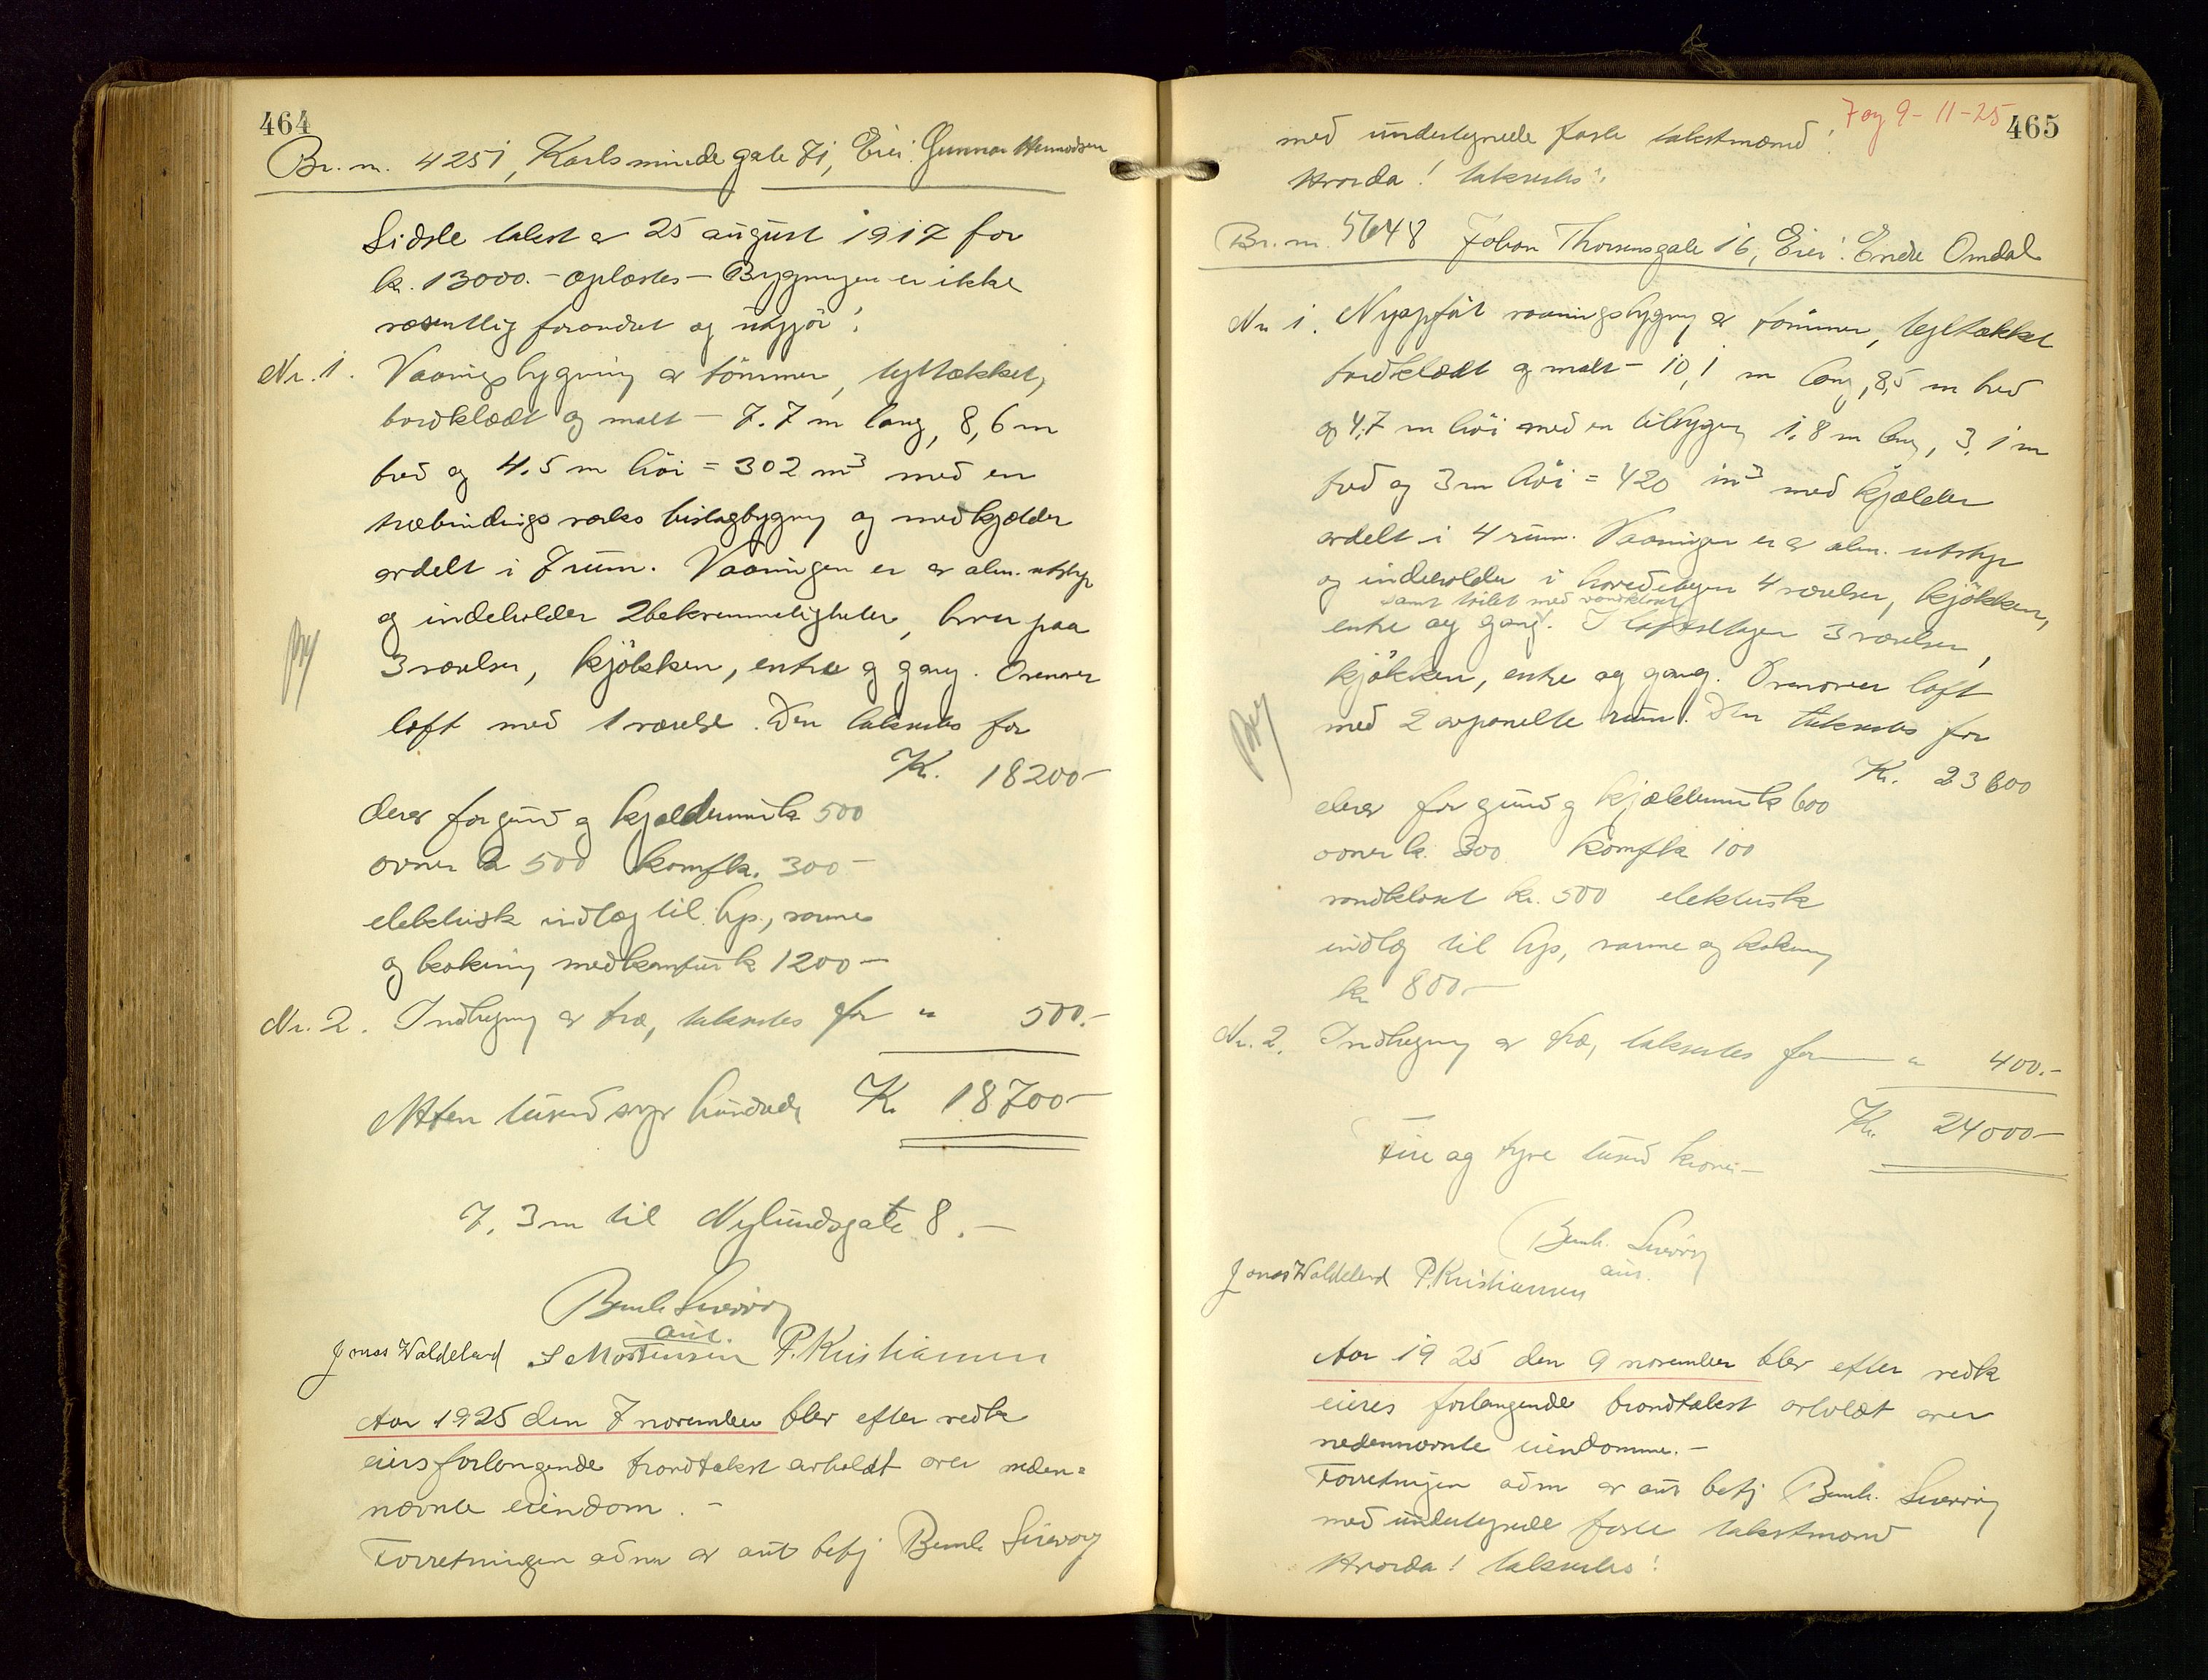 464
Br. nr. 4251, Karlsmindegate 71, Eier: Gunnar
Sidste takst av 25 august 1917 for
kr. 13000.- oplæstes - Bygningen er ikke
væsentlig forandret og utgjør:
Nr. 1. Vaaningsbygning av tømmer, tegltækket,
bordklædt og malt - 7.7 m lang, 8,6 m
bred og 4.5 m høi = 302 m³ med en
træbindingsverks bislagbygning og med kjælder
avdelt i 7 rum. Vaaningen er av alm. utstyr
og indeholder 2 bekvemmeligheter, hver paa
3 værelser, kjøkken, entre og gang. Ovenover
loft med 1 værelse. Den taksertes for
Kr. 18200-
derav for grund og kjældermur kr 500
ovner kr 500 komf kr. 300-
elektrisk indlæg til lys, varme
og kokning med komfur kr 1200-
Nr. 2. Indhegning av træ, taksertes for " 500.-
Atten tusend syv hundrede Kr 18700-
7,3 m til Nylundsgate 8.-
Bernh Sirevåg
aut.
Jonas Waldeland S Mortensen P. Kristiansen
Aar 1925 den 7 november blev efter vedk
eiers forlangende brandtakst avholdt over neden=
nævnte eiendom.-
Forretningen adm av aut befj Bernh Sirevåg
7 og 9-11-25
465
med undertegnede faste takstmænd!
Hvorda! taksertes:
Br. nr. 5648 Johan Thorsensgate 16, Eier: Endre Omdal
Nr 1. Nyopført vaaningsbygning av tømmer, tegltækket
bordklædt og malt - 10,1 m lang, 8,5 m bred
og 4,7 m høi med en tilbygning 1,8 m lang, 3,1 m
bred og 3 m høi = 420 m³ med kjælder
avdelt i 4 rum. Vaaningen er av alm. utstyr
og indeholder i hovedetagen 4 værelser, kjøkken,
samt toilet med vandkloset
entre og gang. I loftsetagen 3 værelser,
kjøkken, entre og gang. Ovenover loft
med 2 avpanelte rum. Den taksertes for
Kr. 23600
derav for grund og kjældermur kr 600
ovner kr. 300 komf kr 100
vandkloset kr. 500 elektrisk
indlæg til lys, varme og kokning
kr 800.-
Nr. 2. Indhegning av træ, taksertes for " 400.-
Kr. 24000-
Fire og tyve tusend kroner-
Bernh. Sirevåg
aut.
Jonas Waldeland P. Kristiansen
Aar 1925 den 9 november blev efter vedk
eieres forlangende brandtakst avholdt over
nedennævnte eiendomme.-
Forretningen adm av aut befj Bernh. Sirevåg
med undertegnede faste takstmænd
Hvorda! taksertes!